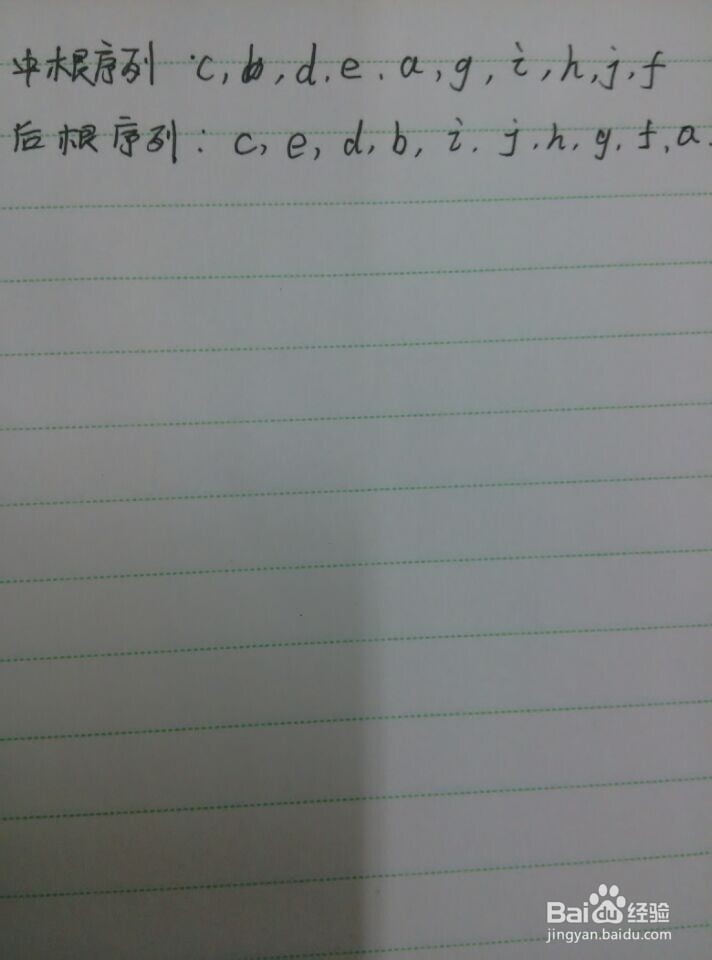 中根序列:c,b,d,e,a,g,i,h,j,f
后根序列:c,e,d,b,i,j,h,g,f,a.
Baidu经验
jingyan.baidu.com